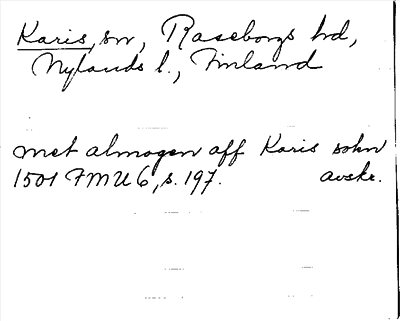 Karis, sn, Raseborgs hd,
Nylands l., Finland
met almogen aff Karis sokn
1501 FMU 6, s. 197. avskr.